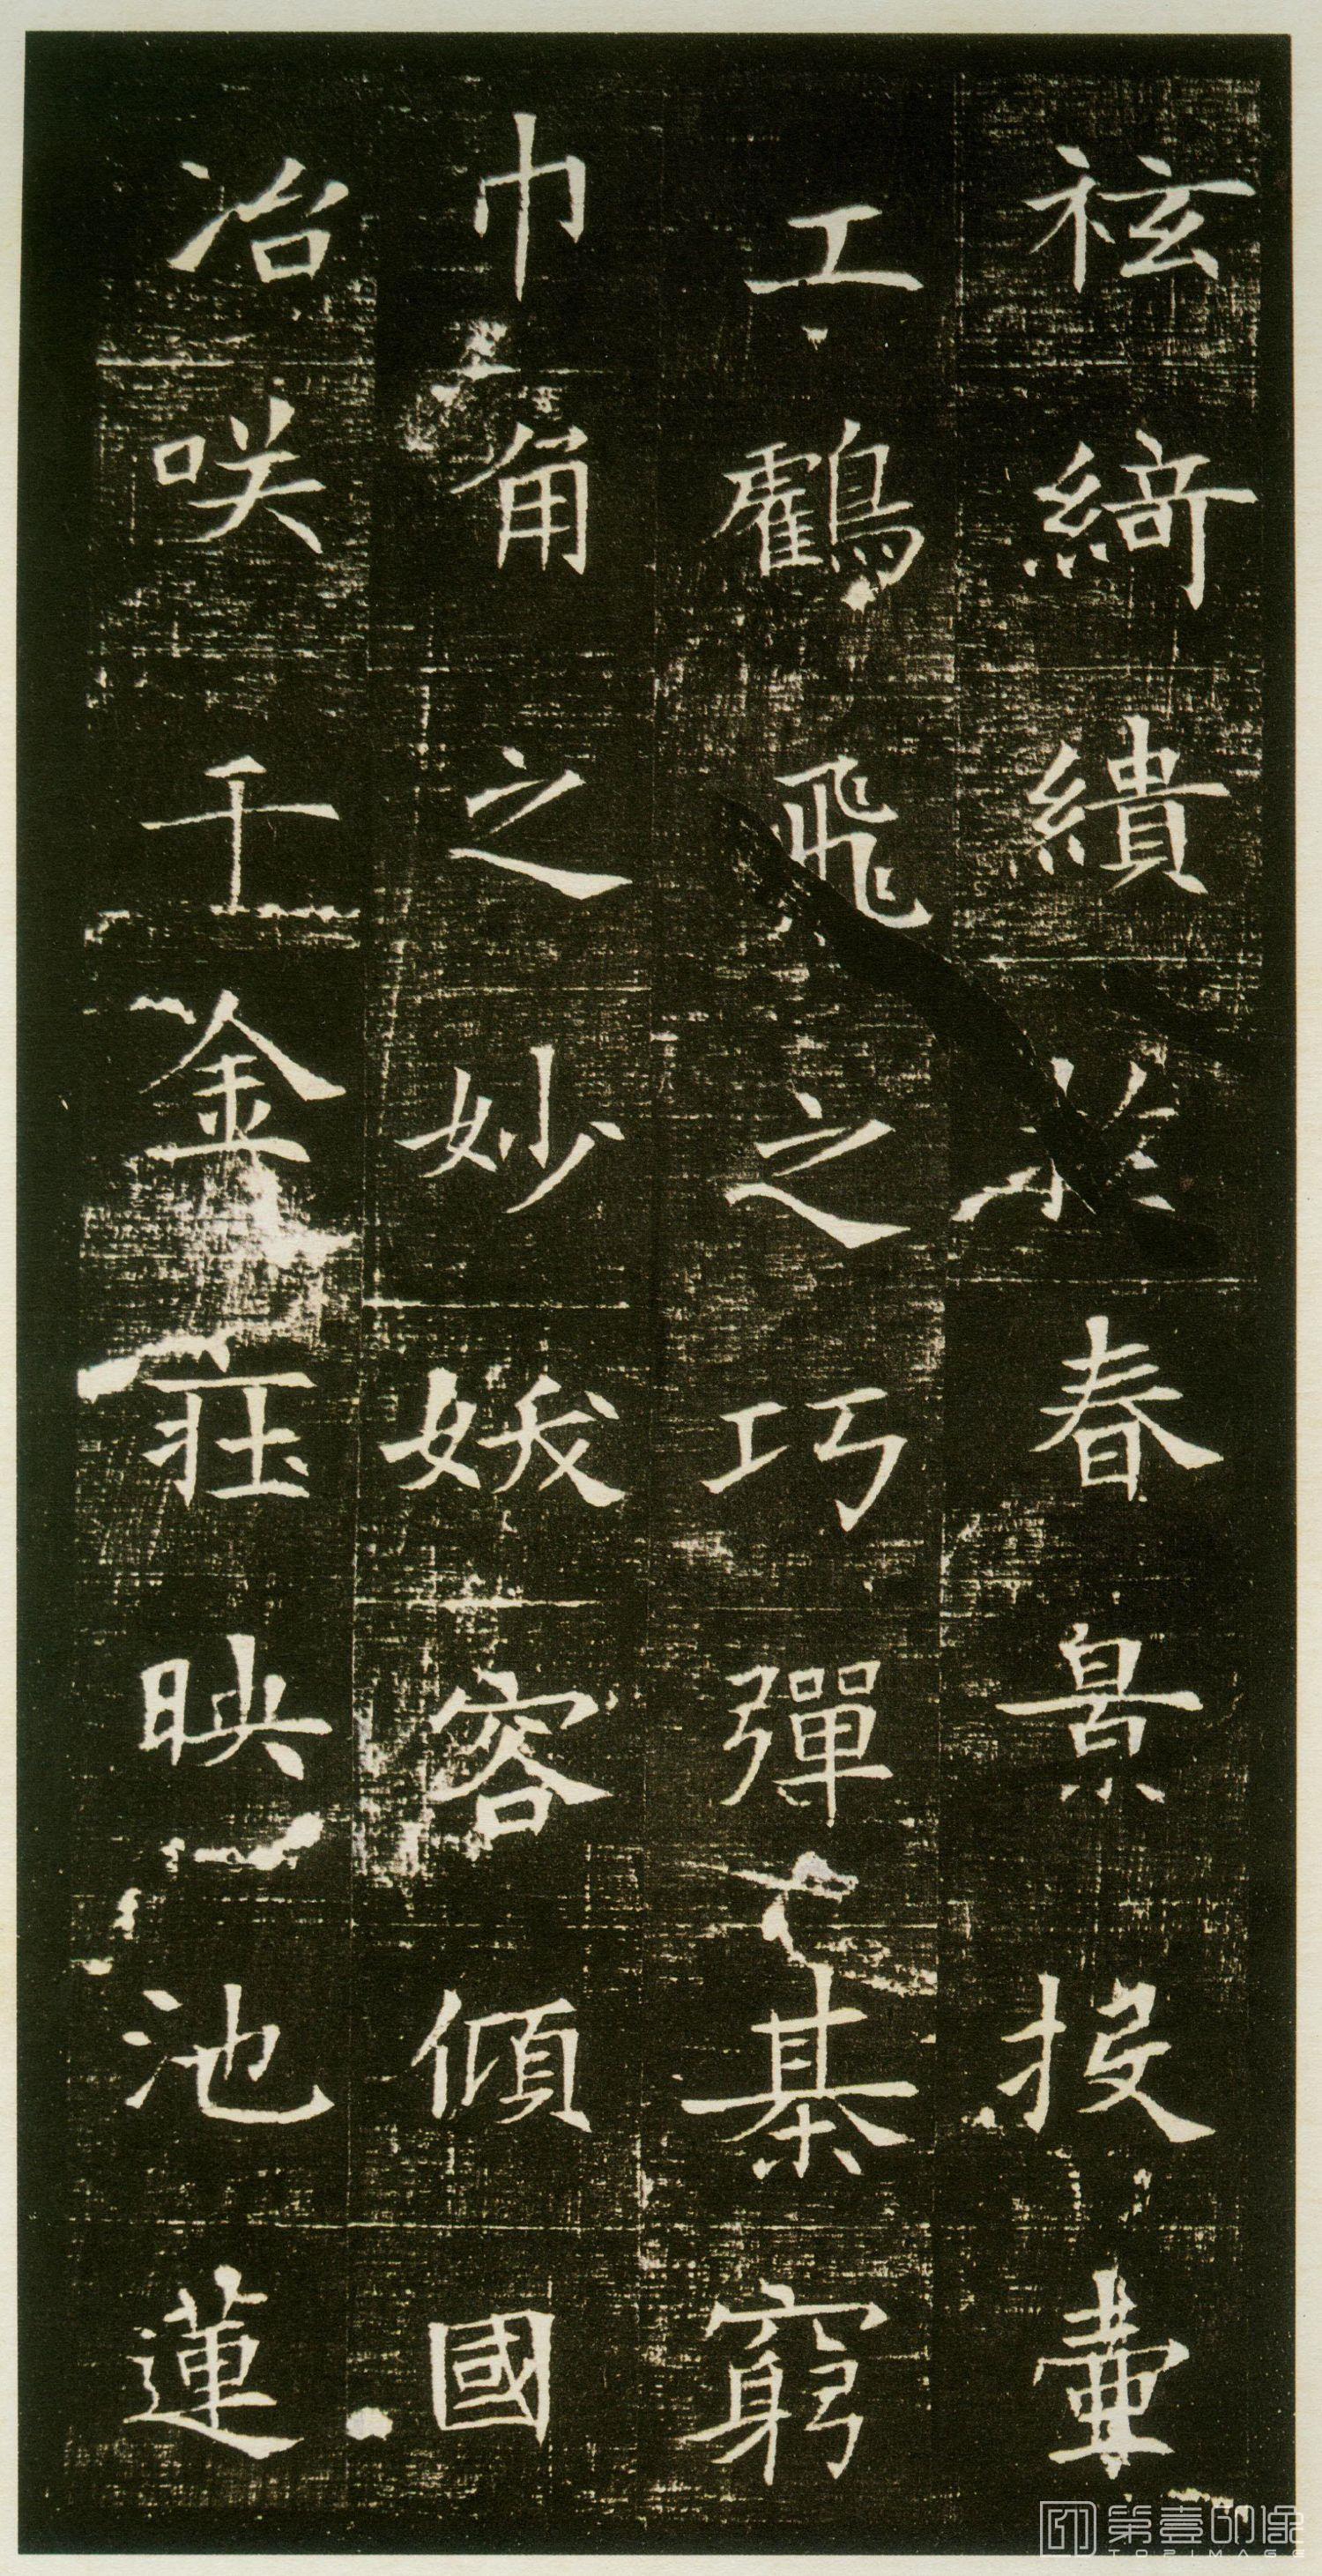 袨綺繢□春景投壺
工鸖飛之巧彈棊窮
巾角之妙妖容傾國
冶咲千金莊映池蓮
第壹印像
TOPIMAGE